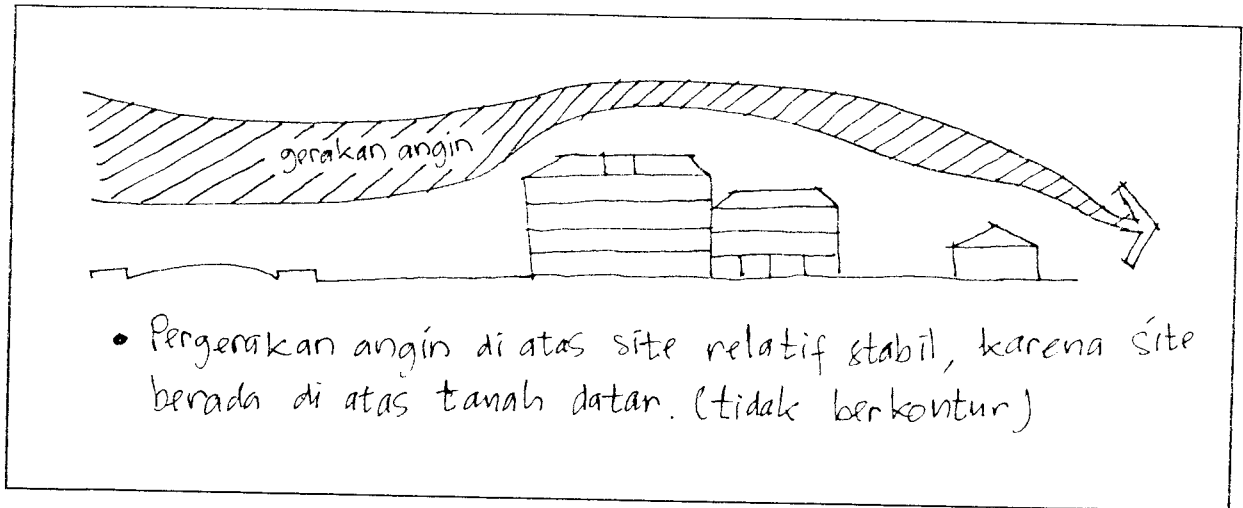 gerakan angin
• Pergerakan angin di atas site relatif stabil, karena site
berada di atas tanah datar. (tidak berkontur)